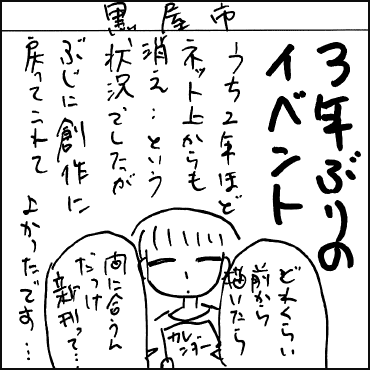 黒屋市
3年ぶりの
イベント
うち2年ほど
ネット上からも
消え…という
状況でしたが
ぶじに創作に
戻ってこれて
よかったです…
どれくらい
前から
描いたら
間に合うん
だっけ
新刊って…
カレ
ンダー